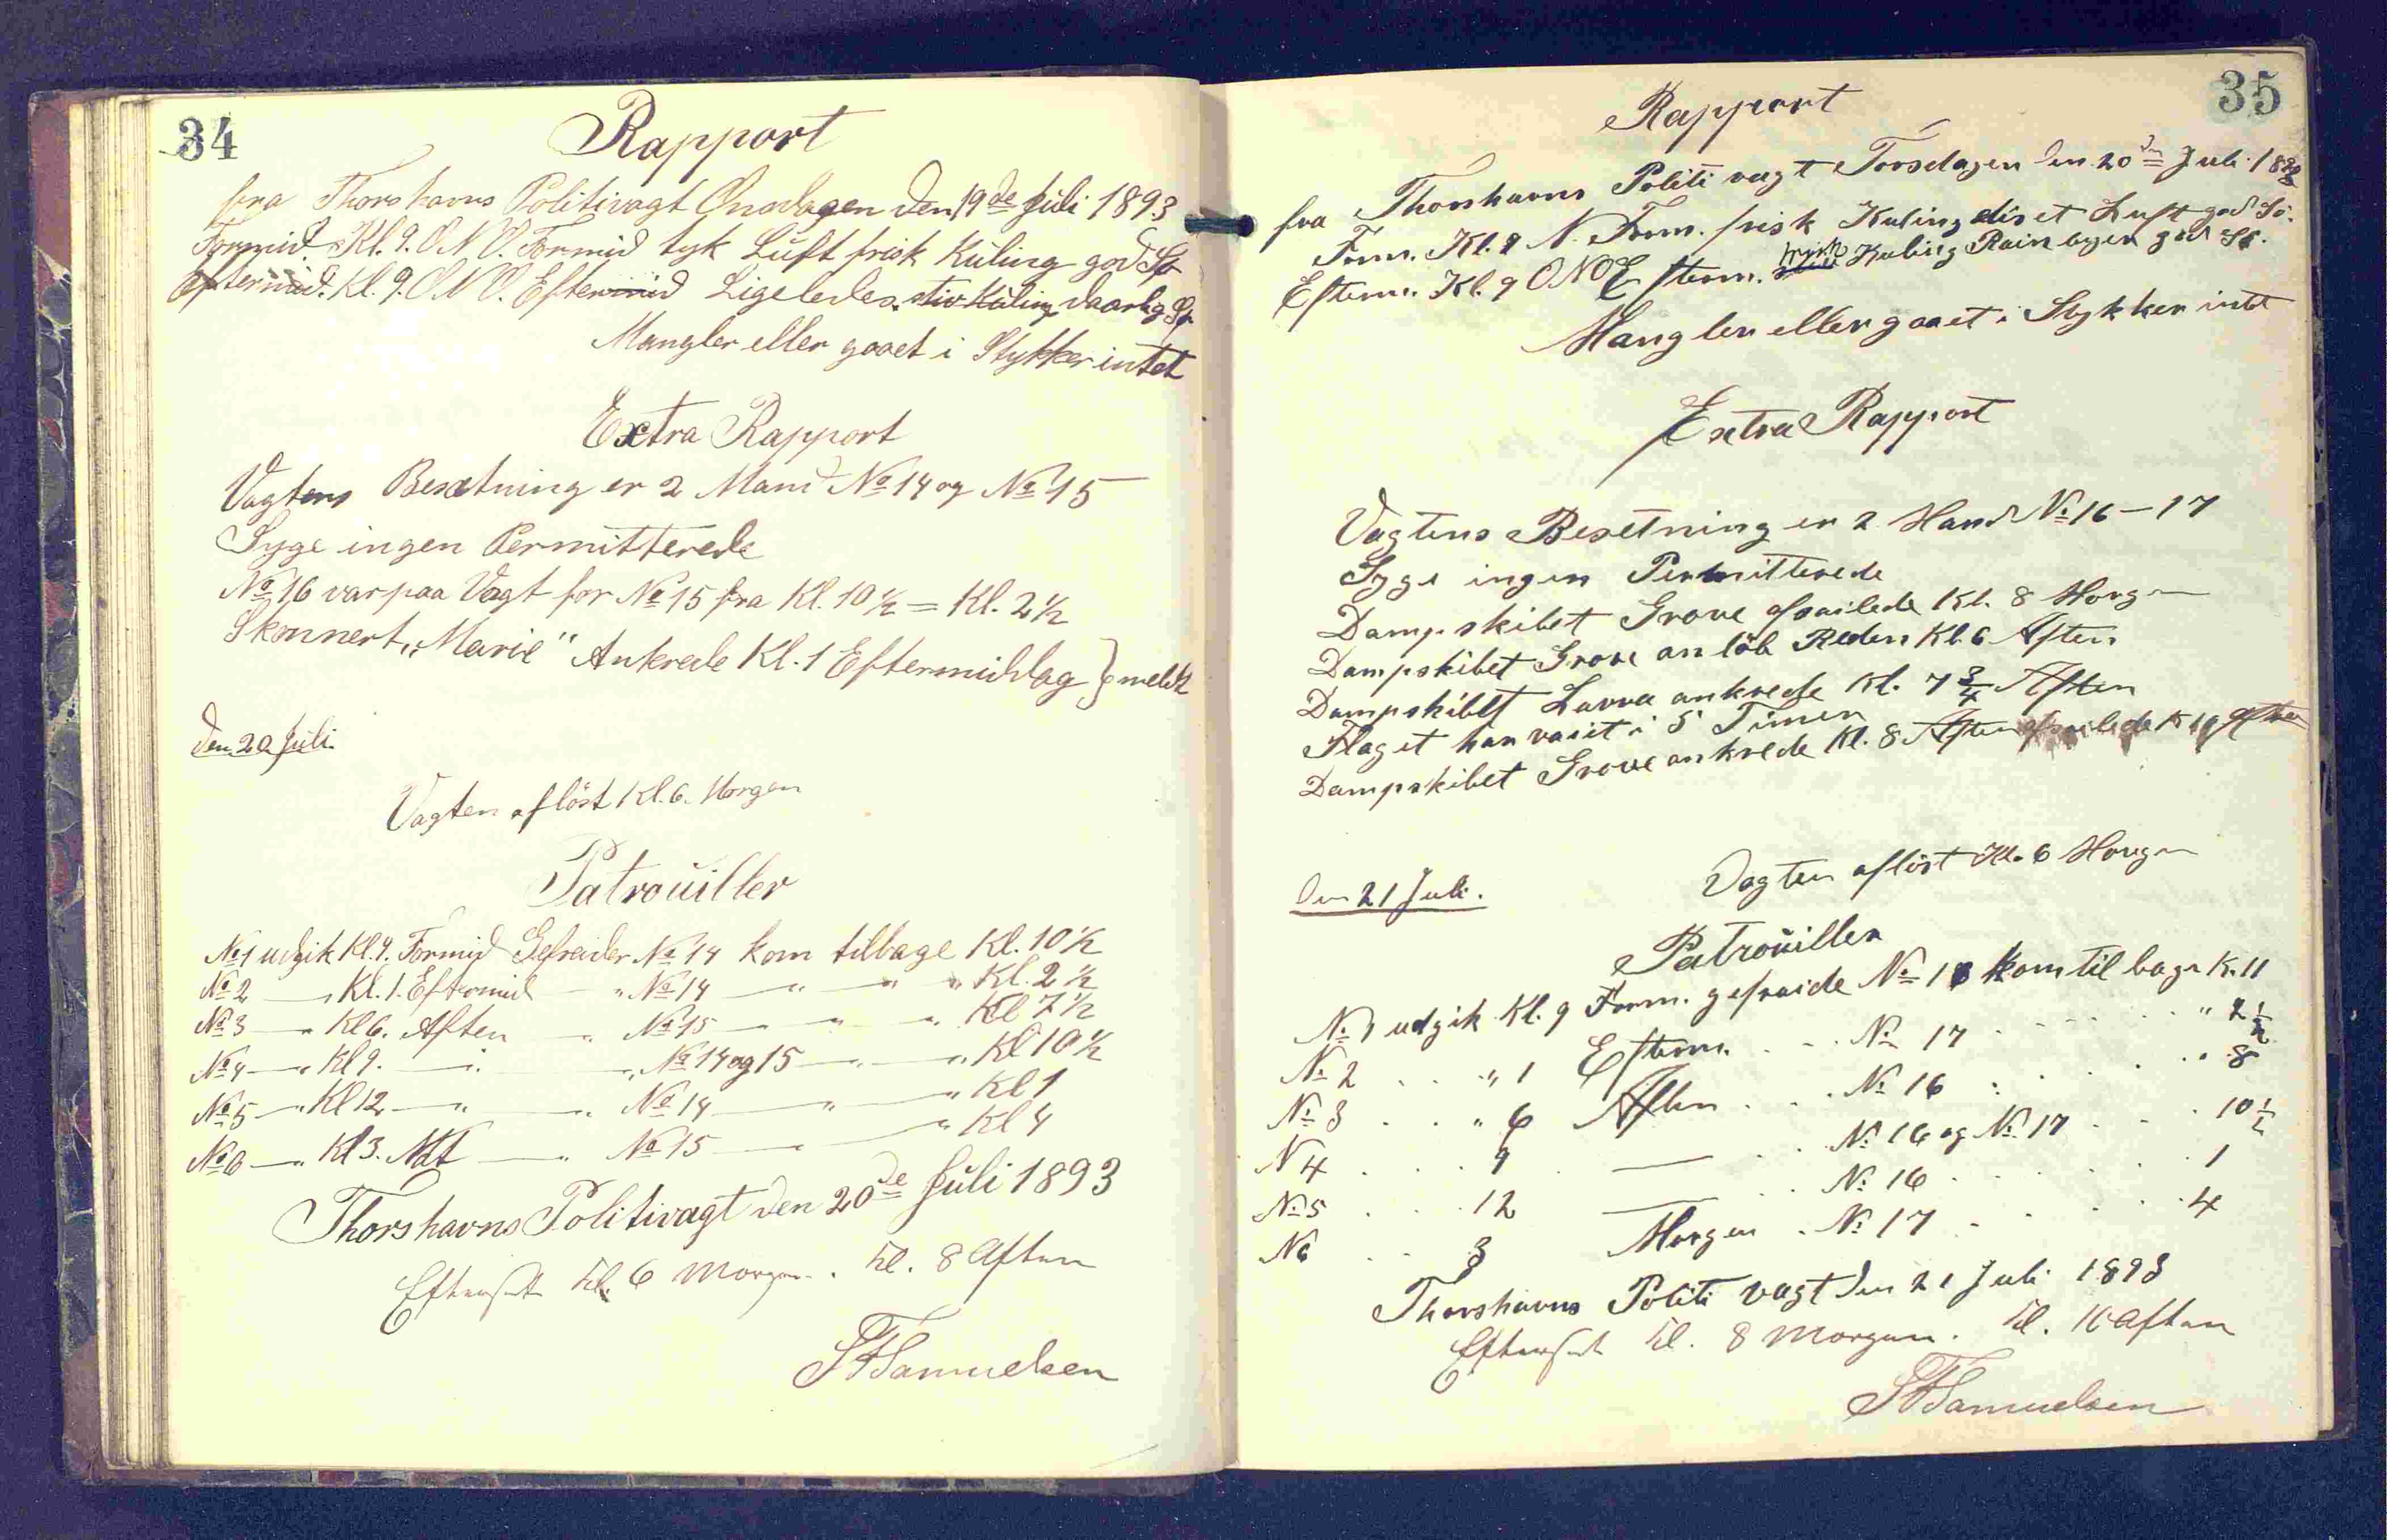 34
Rapport
fra Thorshavns Politivagt Onsdagen den 19de Juli 1893
Formid. Kl. 9. O.N.O. Formid tyk Luft frisk Kuling god Sø
Eftermid. Kl. 9. O.N.O. Eftermid Ligeledes. stiv Kuling daarlig Sø
Mangler eller gaaet i Stykker intet
Extra Rapport
Vagtens Besætning er 2 Mand No 14 og No 15
Syge ingen Permitterede
No 16 var paa Vagt for No 15 fra Kl. 10 1/2 = Kl. 2 1/2
Skonnert „Marie" Ankrede Kl. 1 Eftermiddag } meldt
Den 20 Juli.
Vagten aflöst Kl. 6. Morgen
Patrouiller
No 1 udgik Kl. 9. Formid Gefreider No 14 kom tilbage Kl. 10 1/2
No 2 — " Kl. 1. Eftermid — " No 14 — " — " Kl. 2 1/2
No 3 — " Kl 6. Aften — " No 15 — " — " Kl 7 1/2
No 4 — " Kl 9. — " — " No 14 og 15 — " — " Kl 10 1/2
No 5 — " Kl 12 — " — " No 14 — " — " Kl 1
No 6 — " Kl 3. Nat — " No 15 — " Kl 4
Thorshavns Politivagt den 20de Juli 1893
Efterseet Kl. 6 Morgen. Kl. 8 Aften
Samuelsen
35
Rapport
fra Thorshavns Politi vagt Torsdagen den 20de Juli 1893
Form. Kl. 9 N. Form. frisk Kuling diset Luft god Sö.
Efterm. Kl. 9 ONO Efterm. frisk Kuling Rain byer god Sö.
Mangler eller gaaet i Stykker intet
Extra Rapport
Vagtens Besetning er 2 Mand No 16 – 17
Syge ingen Permitterede
Dampskibet Grove afsailede Kl. 8 Morgen
Dampskibet Grove anlöb Reden Kl. 6 Aften
Dampskibet Laura ankrede Kl. 7 3/4 Aften
Flaget har vaiet i 5 Timer
Dampskibet Grove ankrede Kl. 8 Aften afsailede Kl 10 Aften
Den 21 Juli.
Vagten aflöst Kl. 6 Morgen
Patrouiller
No 1 udgik Kl. 9 Form. gefraide No 16 kom tilbage K. 11
No 2 . . " 1 Efterm. . . No 17 . . . . . " 2 1/2
No 3 . . " 6 Aften . . . No 16 . . . . 8
N 4 . . . 9 . — . . No 16 og No 17 . . . 10 1/2
No 5 . . . 12 — . . No 16 . . . . . 1
N 6 . . 3 Morgen . No 17 . . . . 4
Thorshavns Politi vagt den 21 Juli 1893
Efterseet Kl. 8 Morgen. Kl. 10 Aften
Samuelsen